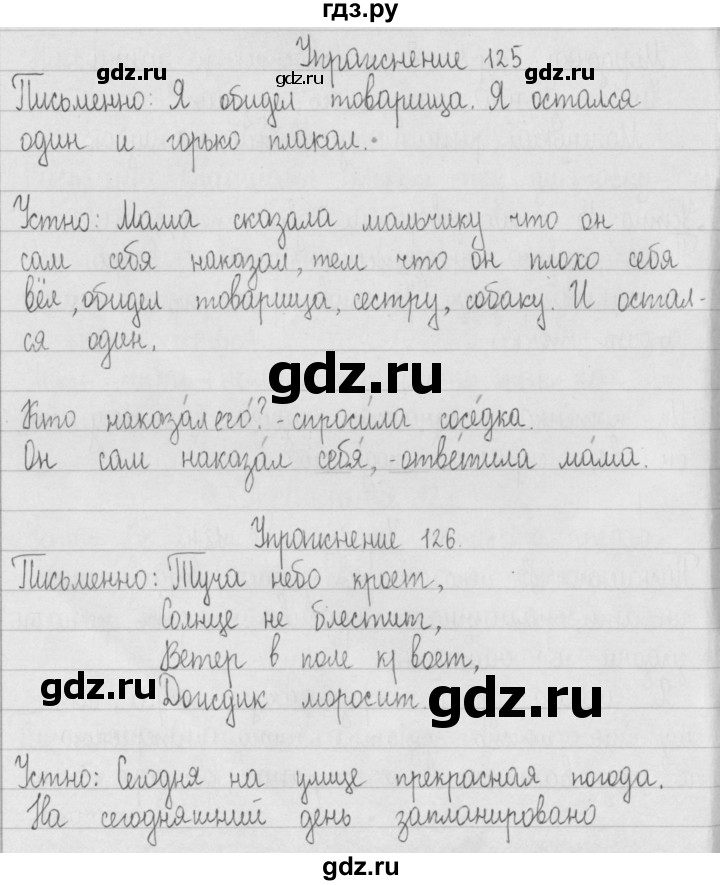 гдз.ру
Упражнение 125
gdz.ru gdz.ru
Письменно: Я обидел товарища. Я остался
один и горько плакал.
Устно: Мама сказала мальчику что он
сам себя наказал, тем что он плохо себя
вёл, обидел товарища, сестру, собаку. И остал-
ся один.
gdz.ru
Кто наказа́л его́? - спроси́ла сосе́дка.
Он сам наказа́л себя́, - отве́тила ма́ма.
gdz.ru
Упражнение 126.
Письменно: Туча небо кроет,
Солнце не блестит,
Ветер в поле воет,
Дождик моросит
gdz.ru gdz.ru
Устно: Сегодня на улице прекрасная погода.
На сегодняшний день запланировано
gdz.ru